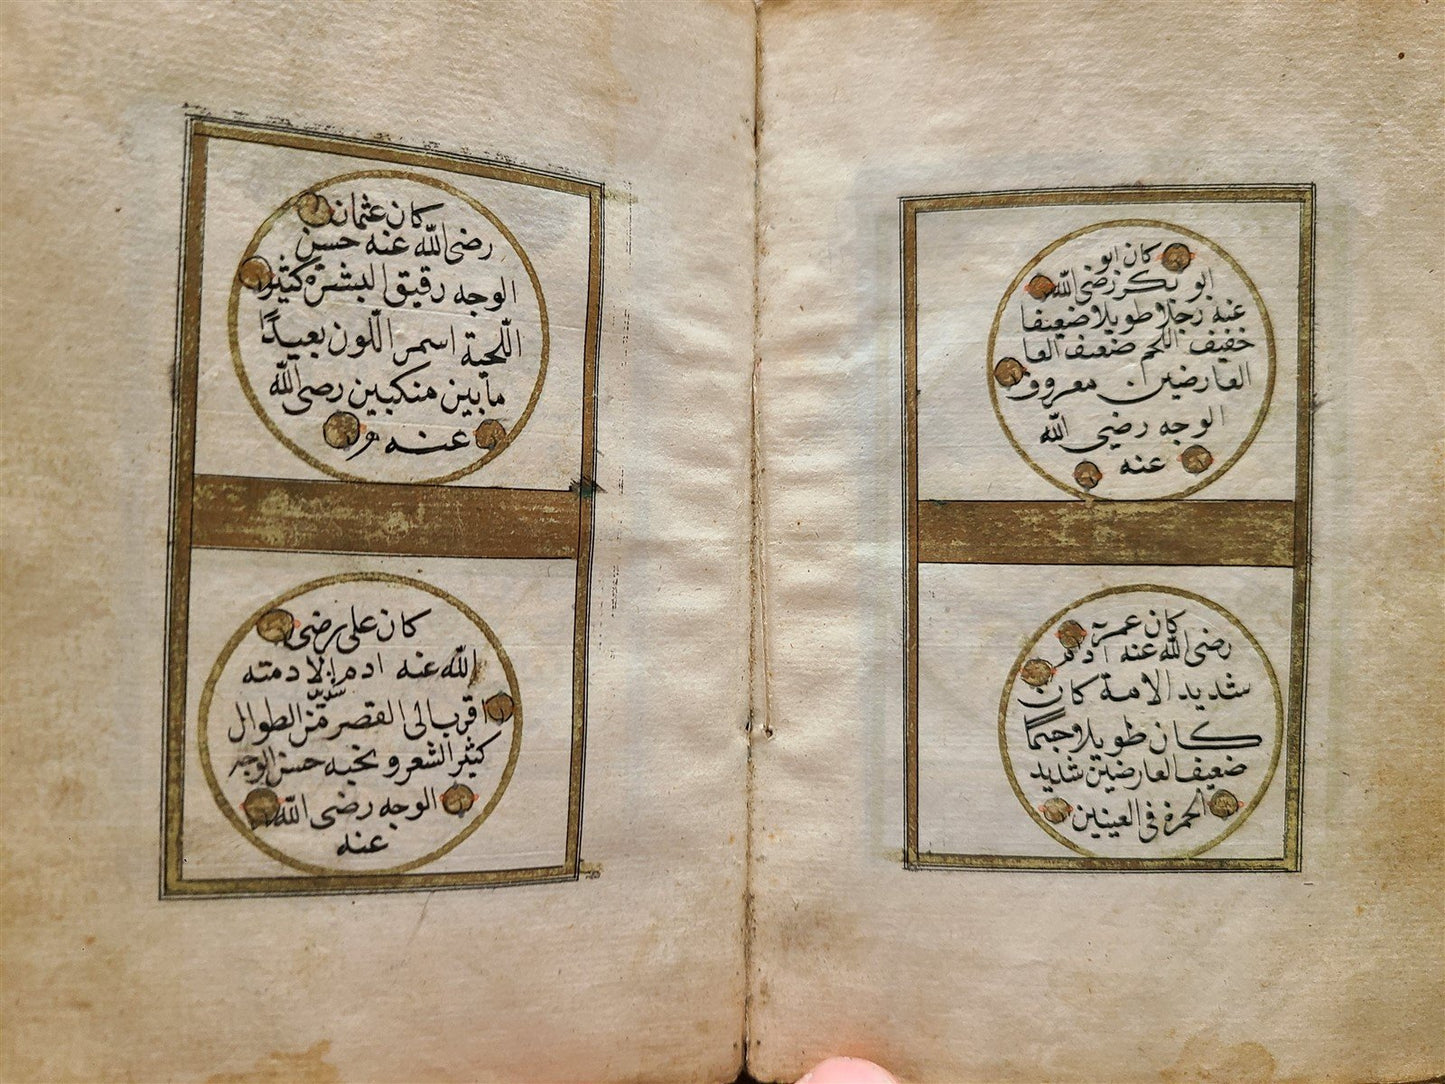 كان ابو
ابو بكر رضى الله
عنه رجلا طويلا ضعيفا
خفيف اللحم ضعيف العا
العارضين معروف
الوجه رضي الله
عنه
كان عمر
رضى الله عنه ادم
شديد الامة كان
كان طويلا وجيها
ضعيف العارضين شديد
الحمرة فى العينين
كان عثمان
رضى الله عنه حسن
الوجه رقيق البشرة كثير
اللحية اسمر اللون بعيدًا
مابين منكبين رضى الله
عنه
كان على رضى
الله عنه ادم الادمته
شديد
اقرب الى القصر من الطوال
كثير الشعر و حسن الوجه
الوجه رضى الله
عنه